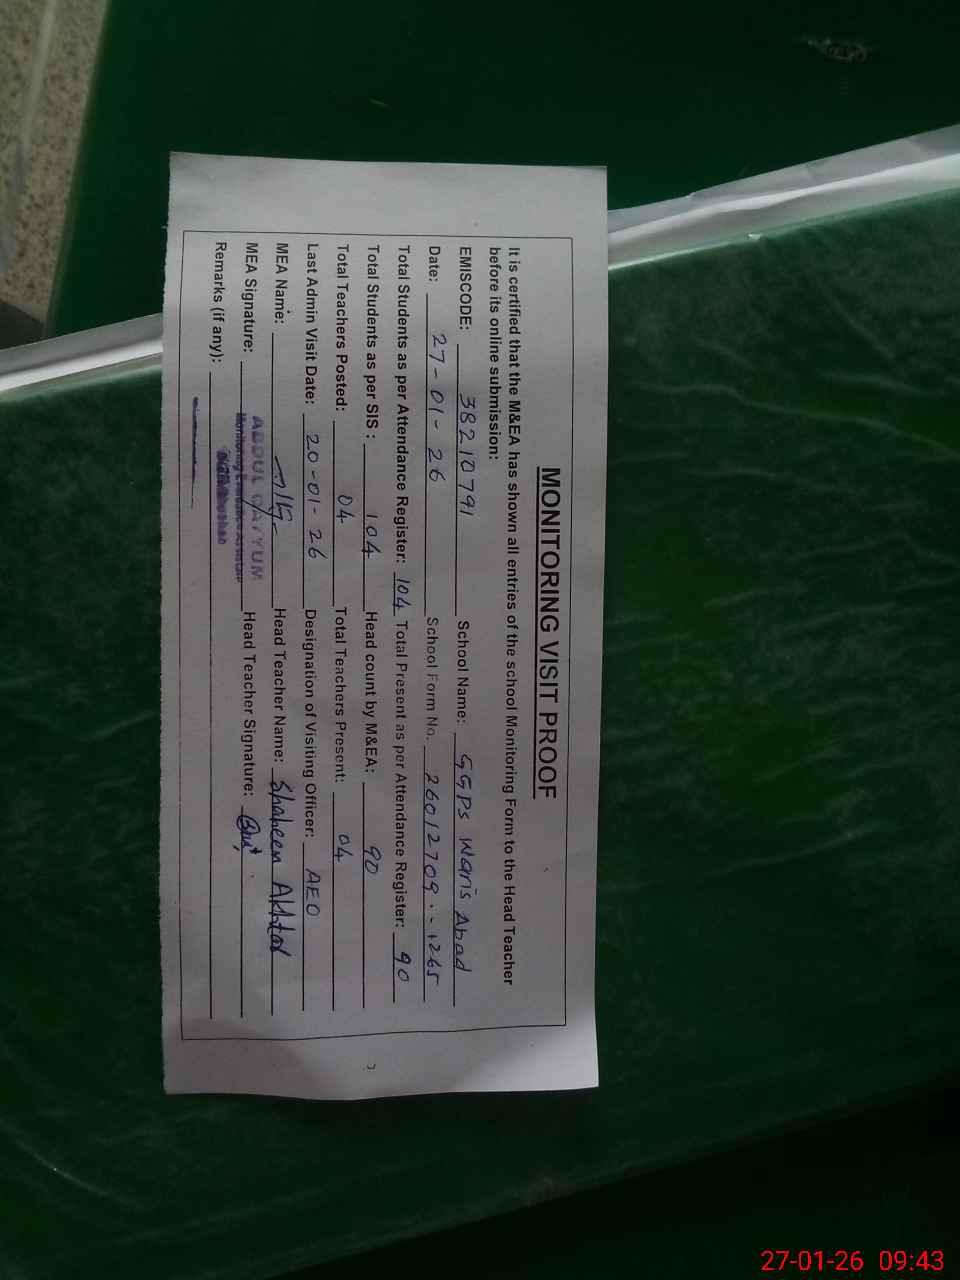 MONITORING VISIT PROOF
It is certified that the M&EA has shown all entries of the school Monitoring Form to the Head Teacher
before its online submission:
EMISCODE: 38210791 School Name: GGPS Waris Abad
Date: 27-01-26 School Form No. 26012709
Total Students as per Attendance Register: 104 Total Present as per Attendance Register: 90
Total Students as per SIS : 104 Head count by M&EA: 90
Total Teachers Posted: 04 Total Teachers Present: 04
Last Admin Visit Date: 20-01-26 Designation of Visiting Officer: AEO
MEA Name: Head Teacher Name: Shaheen Akhtar
MEA Signature: ABDUL QAYYUM Head Teacher Signature:
Monitoring
Remarks (if any):
27-01-26 09:43